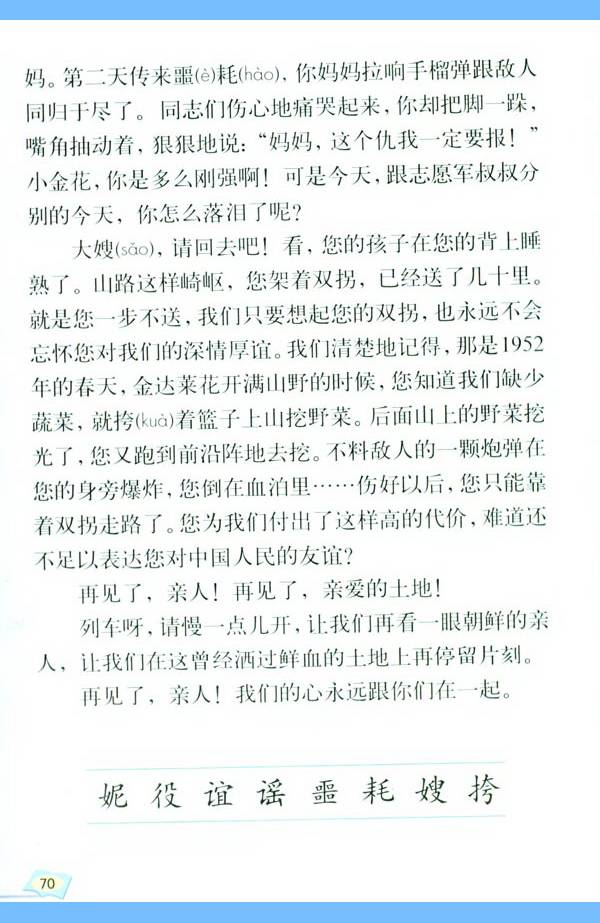 妈。第二天传来噩(è)耗(hào)，你妈妈拉响手榴弹跟敌人
同归于尽了。同志们伤心地痛哭起来，你却把脚一跺，
嘴角抽动着，狠狠地说：“妈妈，这个仇我一定要报！”
小金花，你是多么刚强啊！可是今天，跟志愿军叔叔分
别的今天，你怎么落泪了呢？
大嫂(sǎo)，请回去吧！看，您的孩子在您的背上睡
熟了。山路这样崎岖，您架着双拐，已经送了几十里。
就是您一步不送，我们只要想起您的双拐，也永远不会
忘怀您对我们的深情厚谊。我们清楚地记得，那是1952
年的春天，金达莱花开满山野的时候，您知道我们缺少
蔬菜，就挎(kuà)着篮子上山挖野菜。后面山上的野菜挖
光了，您又跑到前沿阵地去挖。不料敌人的一颗炮弹在
您的身旁爆炸，您倒在血泊里……伤好以后，您只能靠
着双拐走路了。您为我们付出了这样高的代价，难道还
不足以表达您对中国人民的友谊？
再见了，亲人！再见了，亲爱的土地！
列车呀，请慢一点儿开，让我们再看一眼朝鲜的亲
人，让我们在这曾经洒过鲜血的土地上再停留片刻。
再见了，亲人！我们的心永远跟你们在一起。
妮 役 谊 谣 噩 耗 嫂 挎
70